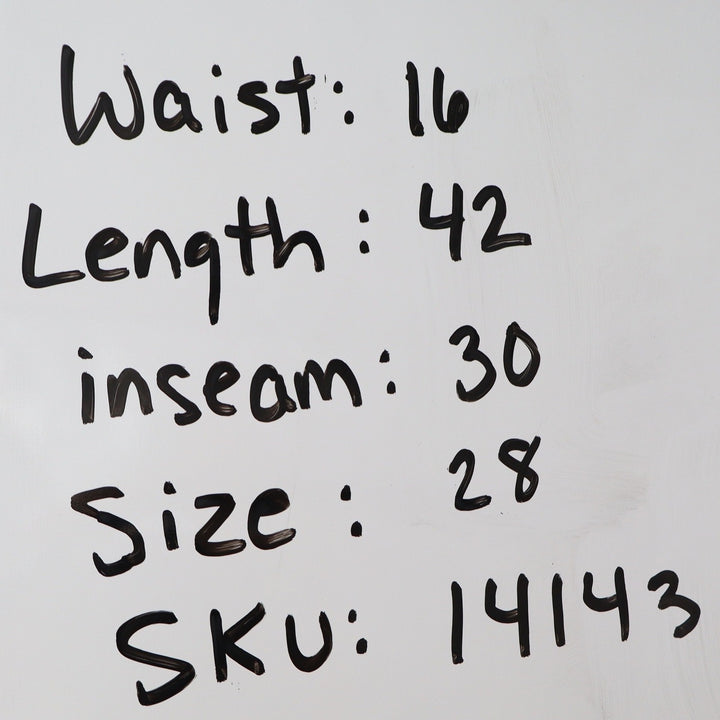 Waist: 16
Length: 42
inseam: 30
Size: 28
SKU: 14143